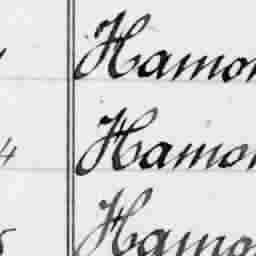 Hamon
4 Hamon
Hamon